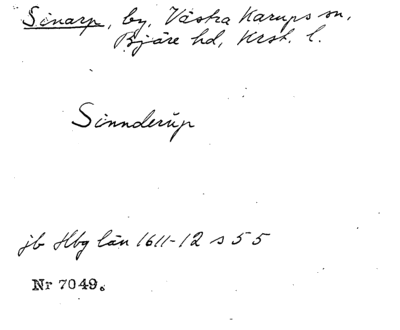 Sinarp, by, Västra Karups sn,
Bjäre hd, Krst. l.
Sinnderup
jb Hbg län 1611-12 s 55
Nr 7049.